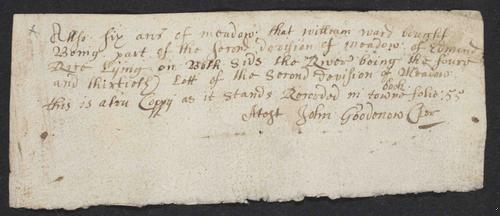 Allso six acrs of meadow: that william ward bought
Being part of the second devision of meadow: of Edmund
Rice Lying on Both Sids the River being the fours
and thirtieth Lott of the Second Devision of Meadow
this is a Coppy as it Stands Recorded in towne book folio: 55
Atest John Goodenow Cler